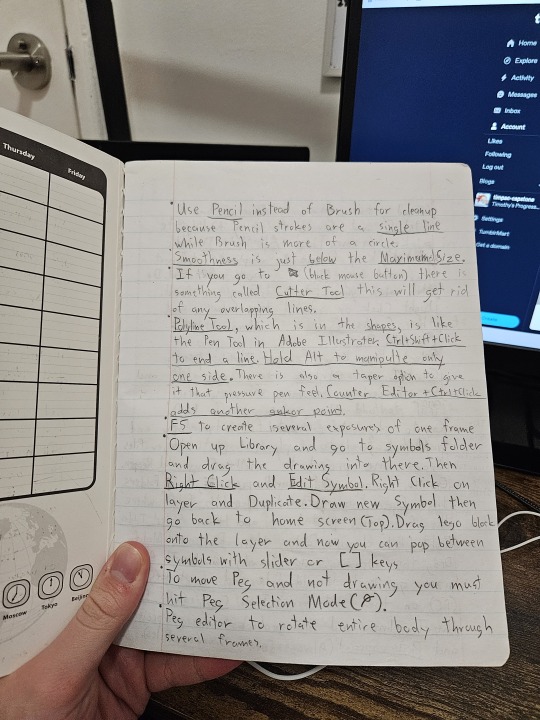 Thursday
Friday
Moscow
Tokyo
Beijing
Use Pencil instead of Brush for cleanup
because Pencil strokes are a single line
while Brush is more of a circle.
Smoothness is just below the Maximum Size.
If you go to (black mouse button) there is
something called Cutter Tool this will get rid
of any overlapping lines.
Polyline Tool, which is in the shapes, is like
the Pen Tool in Adobe Illustrator, Ctrl+Shift+Click
to end a line. Hold Alt to manipulte only
one side. There is also a taper option to give
it that pressure pen feel. Counter Editor + Ctrl+Click
adds another ankor point.
F5 to create several exposures of one frame
Open up Library and go to symbols folder
and drag the drawing into there. Then
Right Click and Edit Symbol. Right Click on
layer and Duplicate. Draw new Symbol then
go back to home screen (Top). Drag lego block
onto the layer and now you can pop between
symbols with slider or [ ] keys
To move Peg and not drawing you must
hit Peg Selection Mode ( ).
Peg editor to rotate entire body through
several frames.
t
Home
Explore
Activity
Messages
Inbox
Account
Likes
Following
Log out
Blogs
timpac-capstone
Timothy's Progress...
Settings
TumblrMart
Get a domain